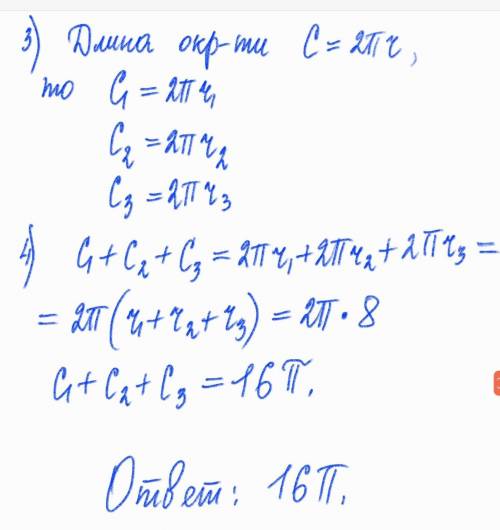 3) Длина окр-ти C = 2πr,
то C₁ = 2πr₁
C₂ = 2πr₂
C₃ = 2πr₃
4) C₁ + C₂ + C₃ = 2πr₁ + 2πr₂ + 2πr₃ =
= 2π(r₁ + r₂ + r₃) = 2π · 8
C₁ + C₂ + C₃ = 16π.
Ответ: 16π.